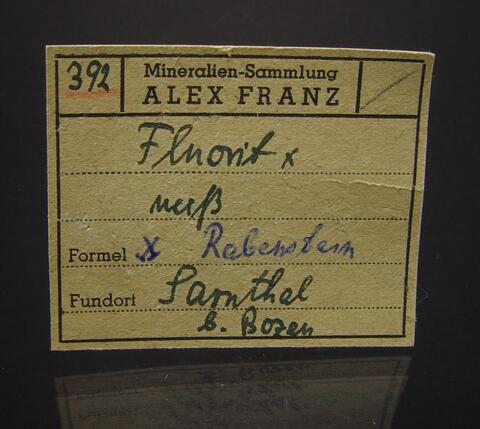 392
Mineralien-Sammlung
ALEX FRANZ
Fluorit x
weiß
Formel x Rabenstein
Fundort Sarnthal
b. Bozen